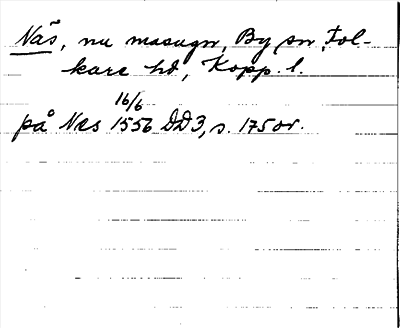 Näs, nu masugn, By sn, Fol-
kare hd, Kopp. l.
16/6
på Nes 1556 DD3, s. 175 or.